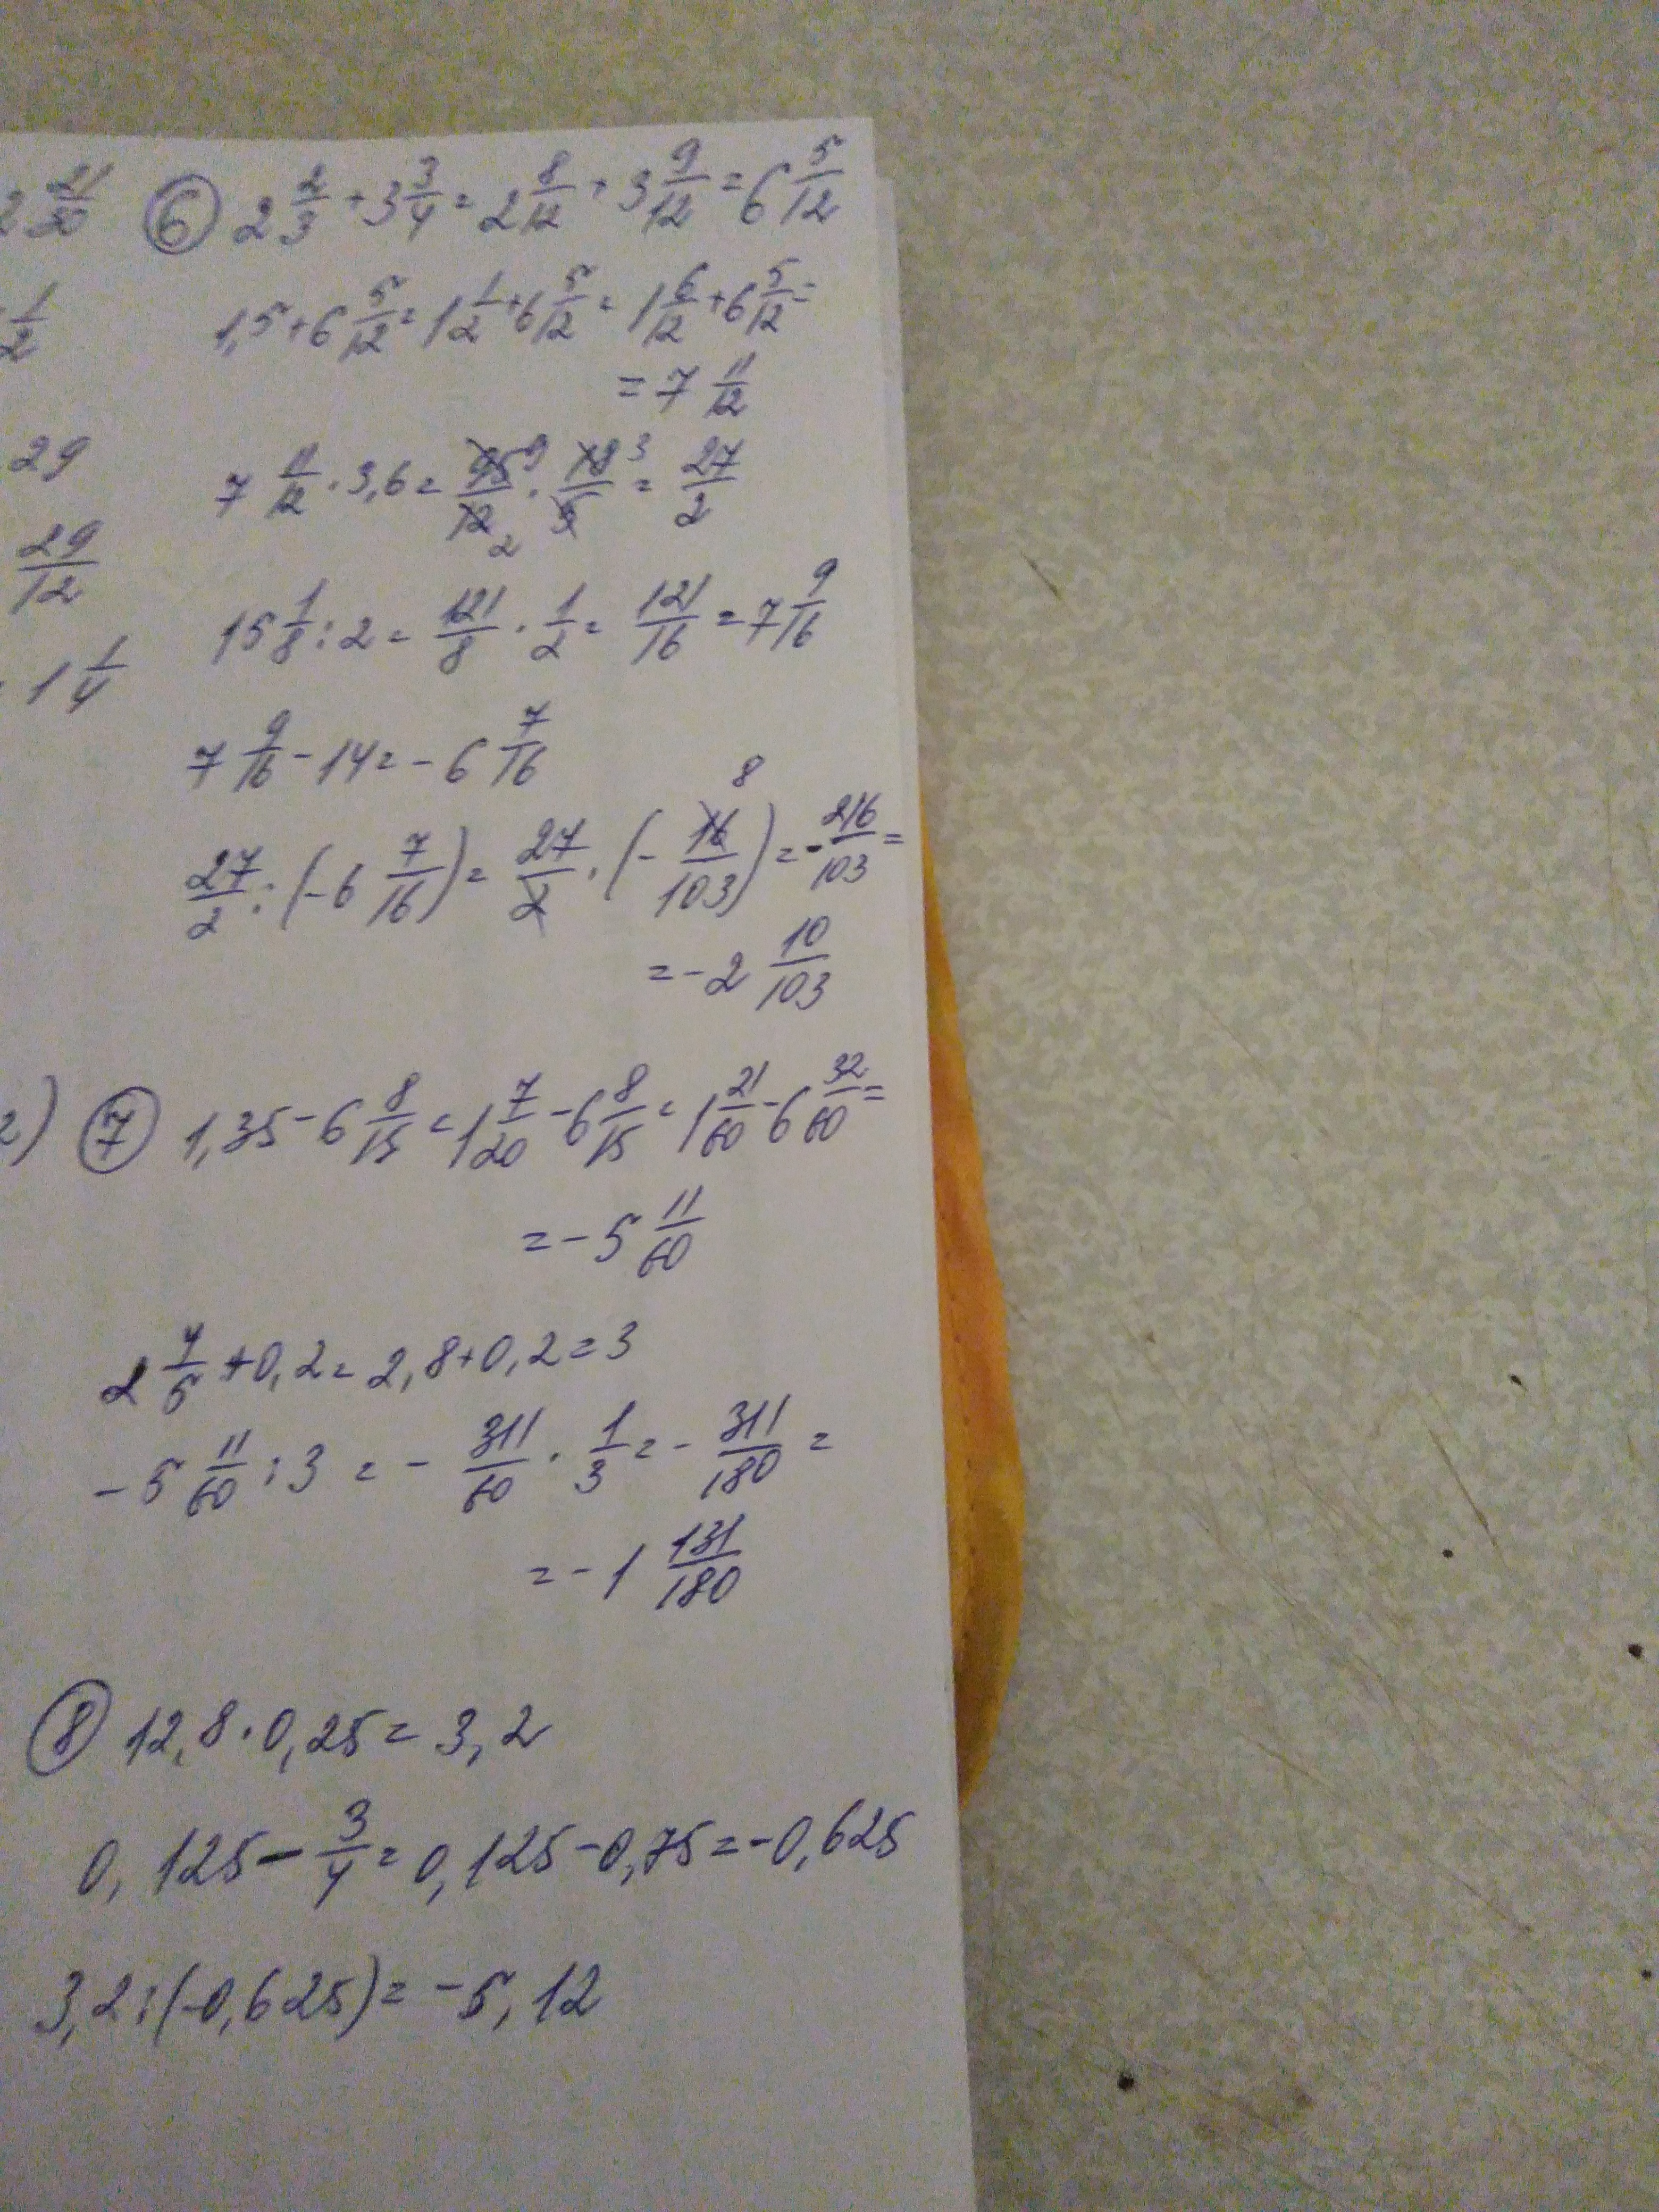 2 21/30 ⑥ 2 2/3 + 3 3/4 = 2 8/12 + 3 9/12 = 6 5/12
1/2 1,5 + 6 5/12 = 1 1/2 + 6 5/12 = 1 6/12 + 6 5/12 =
= 7 11/12
29 7 11/12 · 3,6 = 95/12 · 18/5 = 27/2
9 3
2
29/12 15 1/8 : 2 = 121/8 · 1/2 = 121/16 = 7 9/16
1 1/4
7 9/16 - 14 = - 6 7/16
8
27/2 : (- 6 7/16) = 27/2 · (- 16/103) = - 216/103 =
= - 2 10/103
2) ⑦ 1,35 - 6 8/15 = 1 7/20 - 6 8/15 = 1 21/60 - 6 32/60 =
= - 5 11/60
2 4/5 + 0,2 = 2,8 + 0,2 = 3
- 5 11/60 : 3 = - 311/60 · 1/3 = - 311/180 =
= - 1 131/180
⑧ 12,8 · 0,25 = 3,2
0,125 - 3/4 = 0,125 - 0,75 = - 0,625
3,2 : (-0,625) = - 5,12